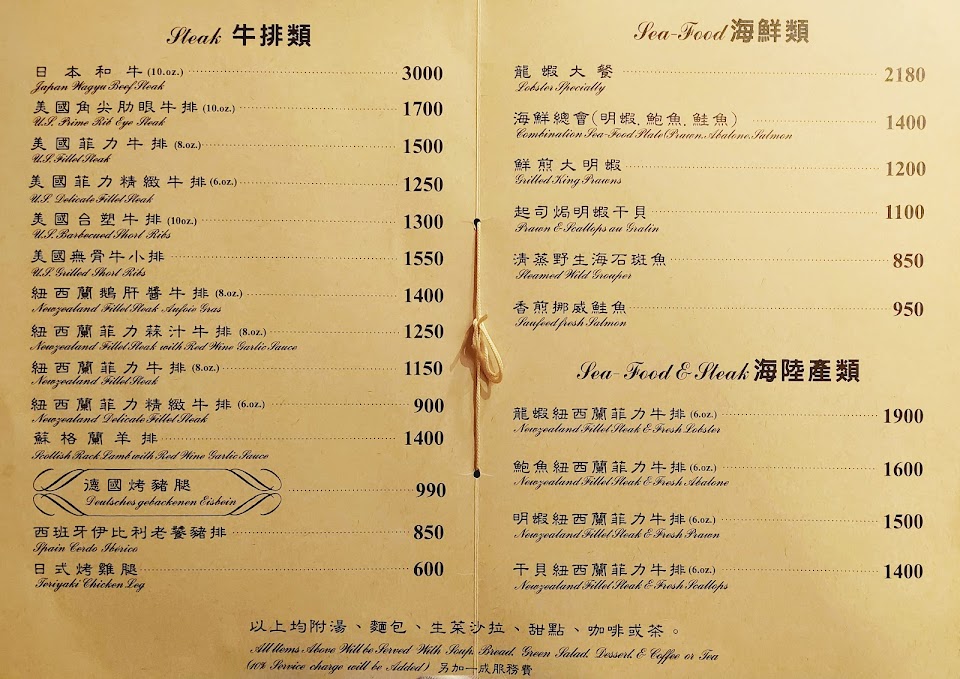 Steak 牛排類
日本和牛(10.oz.) 3000
Japan Wagyu Beef Steak
美國角尖肋眼牛排(10.oz.) 1700
U.S. Prime Rib Eye Steak
美國菲力牛排(8.oz.) 1500
U.S. Fillet Steak
美國菲力精緻牛排(6.oz.) 1250
U.S. Delicate Fillet Steak
美國台塑牛排(10oz.) 1300
U.S. Barbecued Short Ribs
美國無骨牛小排 1550
U.S. Grilled Short Ribs
紐西蘭鵝肝醬牛排(8.oz.) 1400
Newzealand Fillet Steak Aufoie Gras
紐西蘭菲力蒜汁牛排(8.oz.) 1250
Newzealand Fillet Steak with Red Wine Garlic Sauce
紐西蘭菲力牛排(8.oz.) 1150
Newzealand Fillet Steak
紐西蘭菲力精緻牛排(6.oz.) 900
Newzealand Delicate Fillet Steak
蘇格蘭羊排 1400
Scottish Rack Lamb with Red Wine Garlic Sauce
德國烤豬腿 990
Deutsches gebackenen Eisbein
西班牙伊比利老饕豬排 850
Spain Cerdo Iberico
日式烤雞腿 600
Teriyaki Chicken Leg
Sea-Food 海鮮類
龍蝦大餐 2180
Lobster Specialty
海鮮總會(明蝦.鮑魚.鮭魚) 1400
Combination Sea-Food Plate(Prawn.Abalone.Salmon
鮮煎大明蝦 1200
Grilled King Prawns
起司焗明蝦干貝 1100
Prawn & Scallops au Gratin
清蒸野生海石斑魚 850
Steamed Wild Grouper
香煎挪威鮭魚 950
Saufeed fresh Salmon
Sea-Food & Steak 海陸產類
龍蝦紐西蘭菲力牛排(6.oz.) 1900
Newzealand Fillet Steak & Fresh Lobster
鮑魚紐西蘭菲力牛排(6.oz.) 1600
Newzealand Fillet Steak & Fresh Abalone
明蝦紐西蘭菲力牛排(6.oz.) 1500
Newzealand Fillet Steak & Fresh Prawn
干貝紐西蘭菲力牛排(6.oz.) 1400
Newzealand Fillet Steak & Fresh Scallops
以上均附湯、麵包、生菜沙拉、甜點、咖啡或茶。
All Items Above Will be Served With Soup, Bread, Green Salad, Dessert, & Coffee or Tea
(10% Service charge will be Added) 另加一成服務費